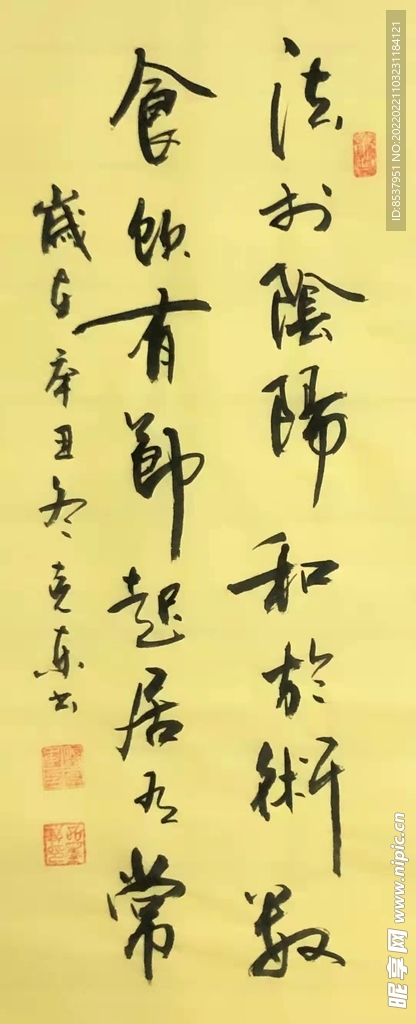 法於陰陽和於術數
食飲有節起居有常
歲在辛丑冬克东书
ID:8537951 NO:20220221103231184121
昵享网 www.nipic.cn